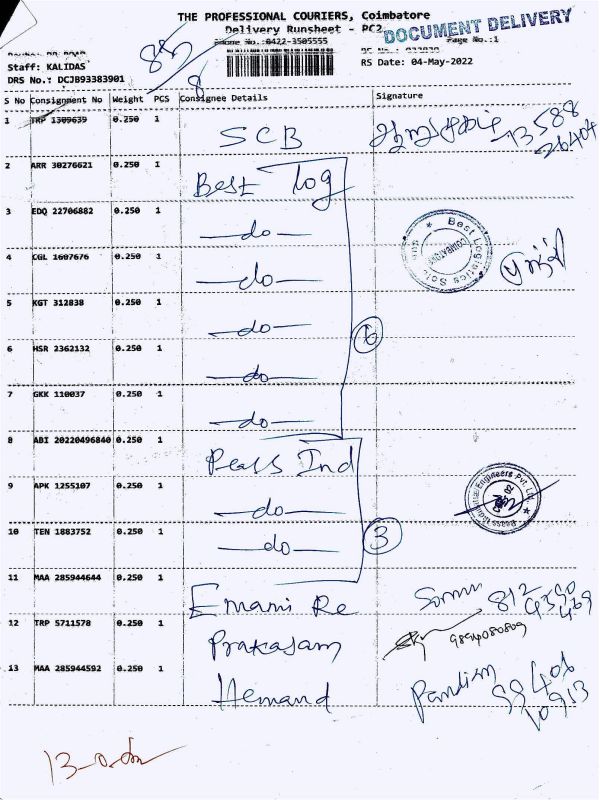 THE PROFESSIONAL COURIERS, Coimbatore
Delivery Runsheet - PC2
DOCUMENT DELIVERY
Phone No.:0422-3505555 Page No.:1
Staff: KALIDAS RS Date: 04-May-2022
DRS No.: DCJB93383901
8
S No Consignment No Weight PCS Consignee Details Signature
1 TRP 1309639 0.250 1 SCB
2 ARR 30276621 0.250 1 Best log
3 EDQ 22706882 0.250 1 —do—
4 CGL 1607676 0.250 1 —do—
5 KGT 312838 0.250 1 —do—
6 HSR 2362132 0.250 1 —do—
7 GKK 110037 0.250 1 —do—
6
Best Logistics Solu
COIMBATORE
8 ABI 20220496840 0.250 1 Peass Ind
9 APK 1255107 0.250 1 —do—
10 TEN 1883752 0.250 1 —do—
3
Peass Industrial Engineers Pvt. Ltd.
11 MAA 285944644 0.250 1 Emami Re
12 TRP 5711578 0.250 1 Prakasam
13 MAA 285944592 0.250 1 Hemand